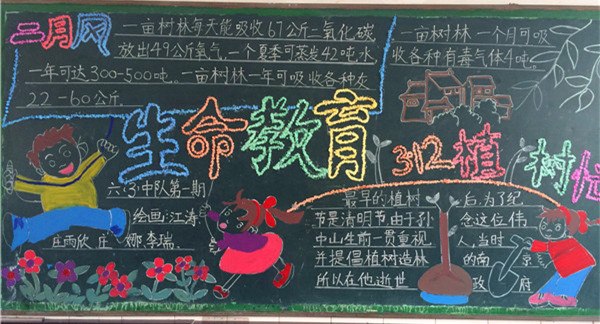 二月风
一亩树林每天能吸收67公斤二氧化碳
放出49公斤氧气.一个夏季可蒸发42吨水,
一年可达300-500吨.一亩树林一年可吸收各种灰
22-60公斤.
一亩树林一个月可吸
收各种有毒气体4吨.
生命教育
312植树忙
六(3)中队第一期
绘画:江涛
庄雨欣 庄 娜 李瑞.
最早的植树
节是清明节由于孙
中山生前一贯重视
并提倡植树造林
所以在他逝世
后,为了纪
念这位伟
人,当时
的南京
政府